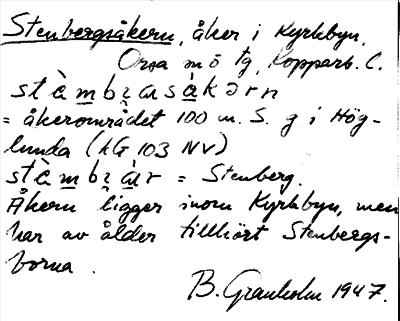 Stenbergsåkern, åker i Kyrkbyn,
Orsa m o tg, Kopparb. l.
stàmbʒasàkərn
= åkerområdet 100 m. S. g i Hög-
lunda (kG 103 NV)
stàmbʒàr = Stenberg.
Åkern ligger inom Kyrkbyn, men
har av ålder tillhört Stenbergs-
borna.
B. Granholm 1947.